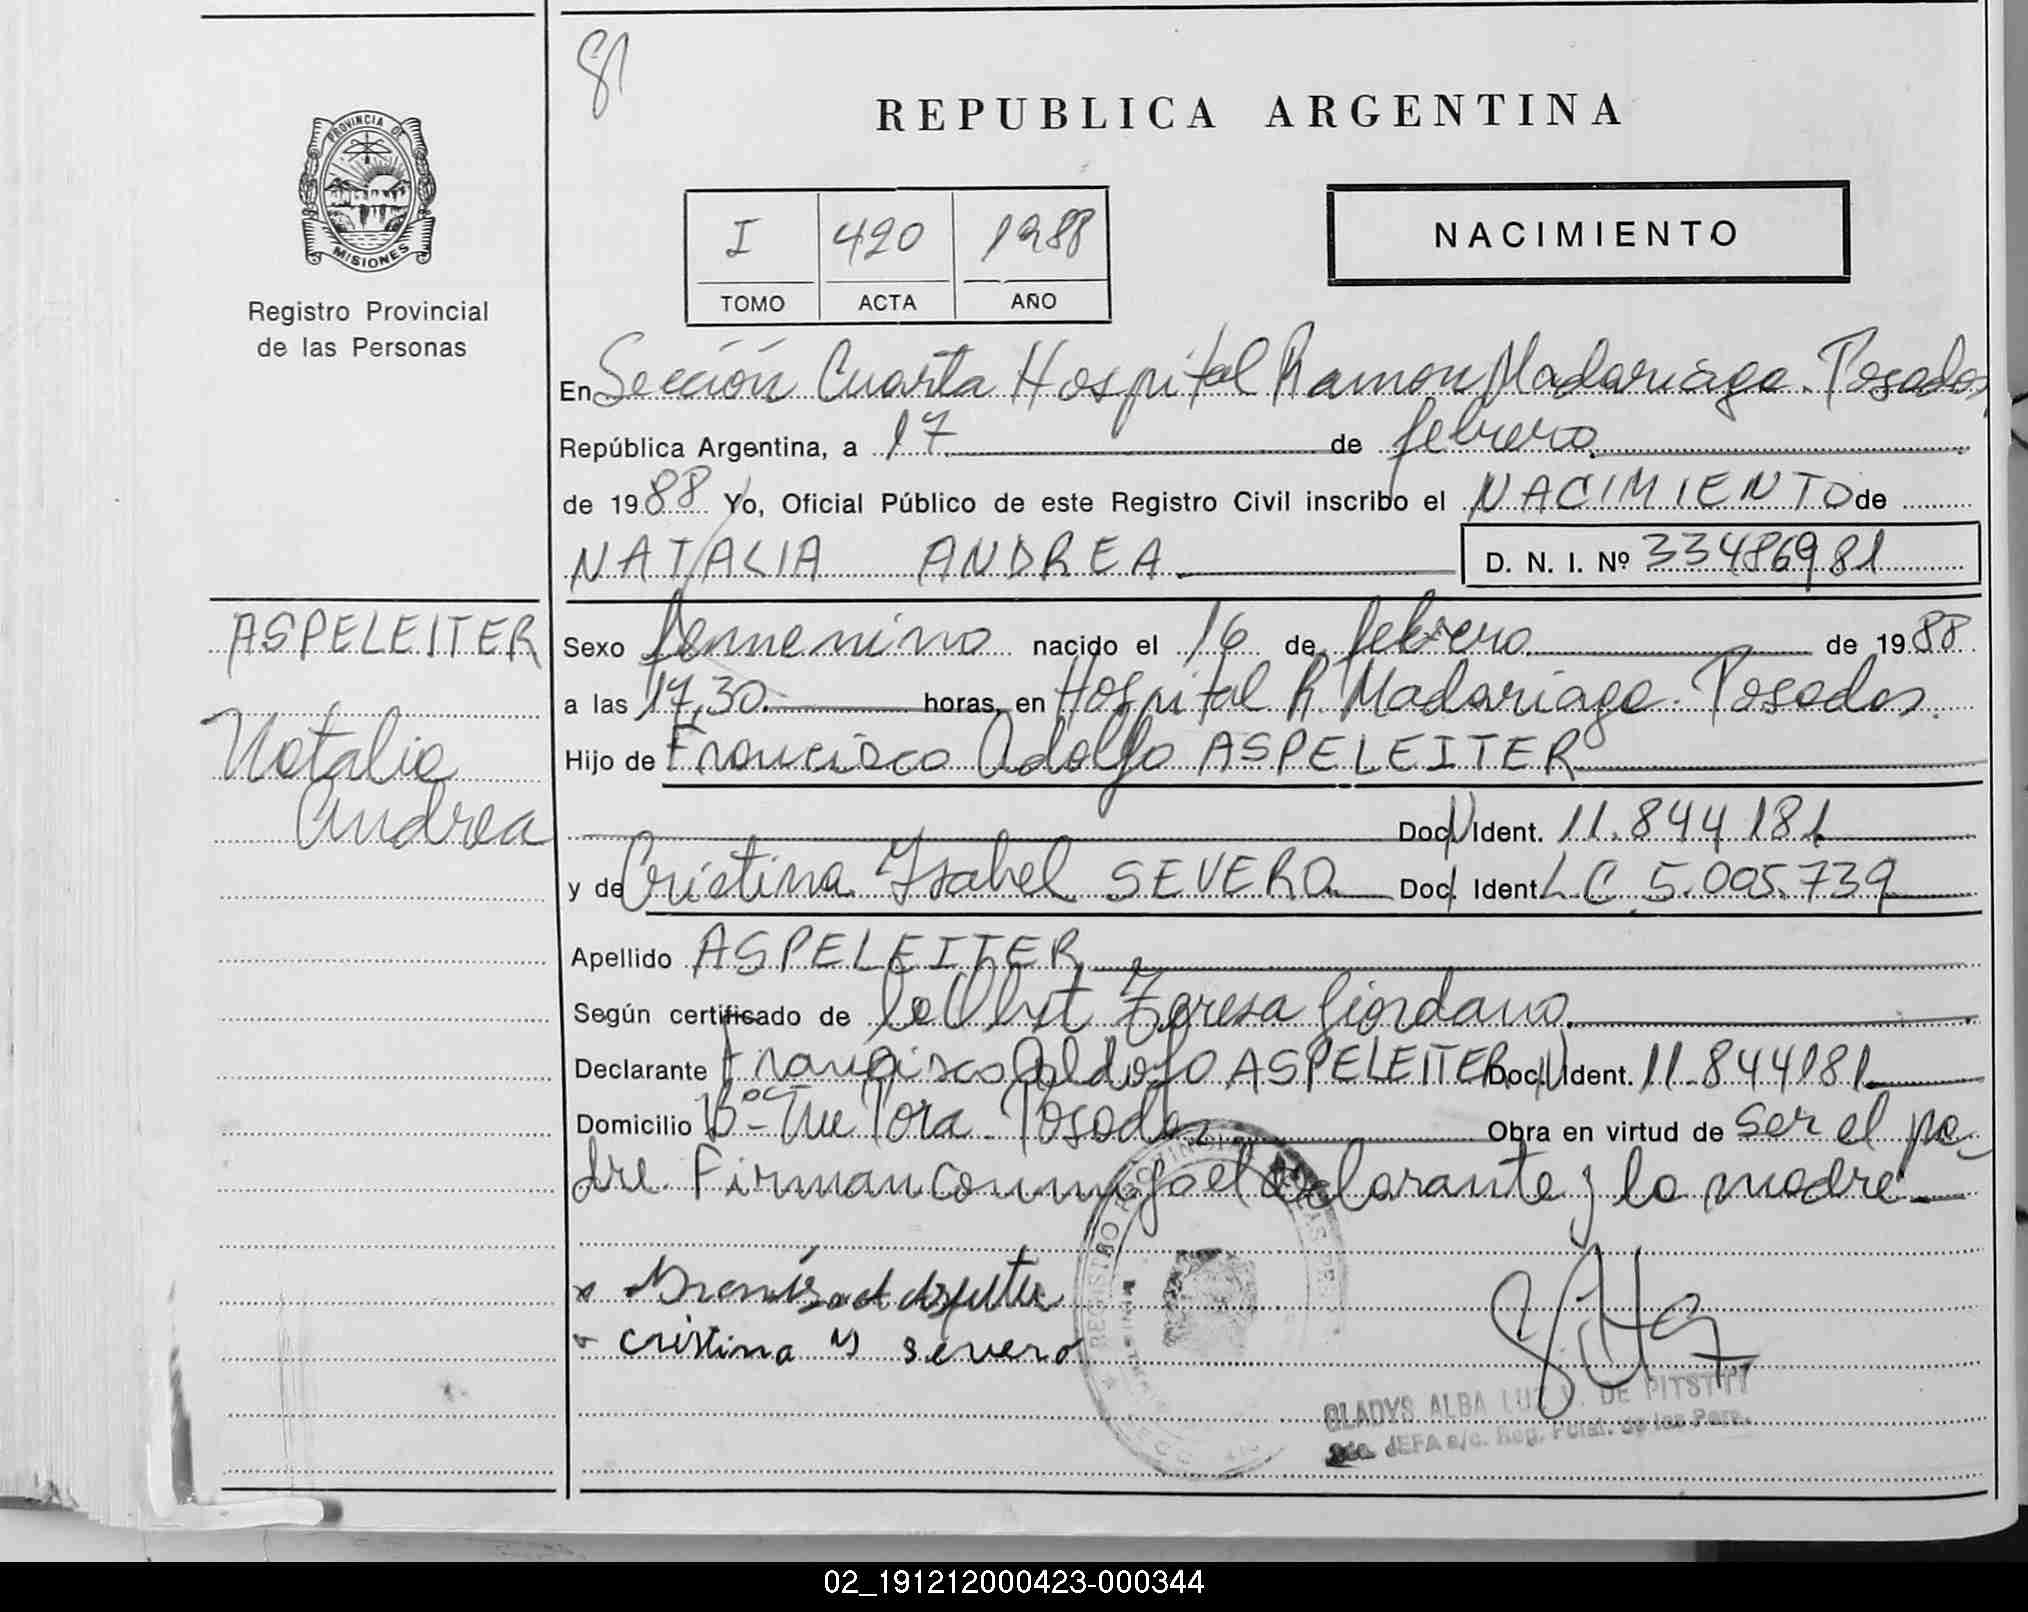 81
REPUBLICA ARGENTINA
PROVINCIA DE
MISIONES
Registro Provincial
de las Personas
I 420 1988
TOMO ACTA AÑO
NACIMIENTO
En Sección Cuarta Hospital Ramon Madariaga. Posadas
República Argentina, a 17 de febrero
de 1988 Yo, Oficial Público de este Registro Civil inscribo el NACIMIENTO de
NATALIA ANDREA
D. N. I. Nº 33486981
ASPELEITER
Natalia
Andrea
Sexo femenino nacido el 16 de febrero de 1988
a las 17,30 horas, en Hospital R. Madariaga. Posadas.
Hijo de Francisco Adolfo ASPELEITER
Doc. Ident. 11.844.181
y de Cristina Ysabel SEVERO Doc. Ident. L C 5.005.739
Apellido ASPELEITER
Según certificado de la Obst Teresa Giordano.
Declarante Francisco Adolfo ASPELEITER Doc. Ident. 11.844181
Domicilio Bº Posadas Obra en virtud de ser el pa-
dre. Firman conmigo el declarante y la madre
x
cristina y severo
REGISTRO PROVINCIAL
GLADYS ALBA LUZ V. DE
JEFA a/c. Reg. Pcial. de las Pers.
02_191212000423-000344